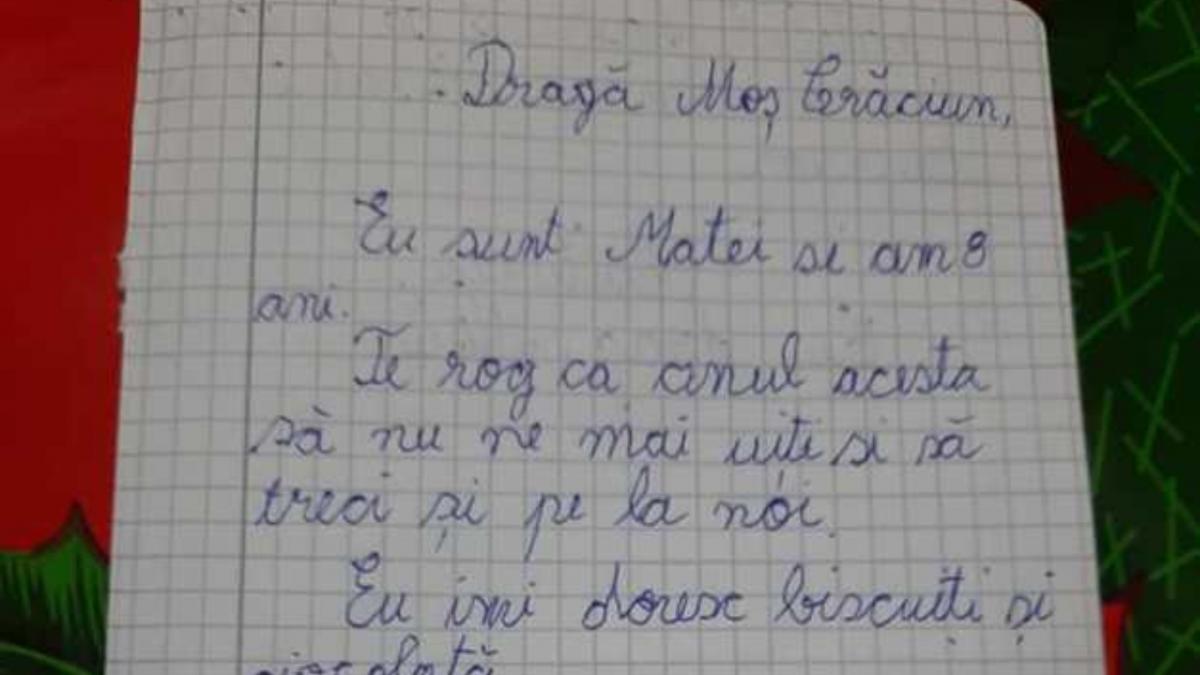 Dragă Moş Crăciun,
Eu sunt Matei si am 8
ani.
Te rog ca anul acesta
să nu ne mai uiti si să
treci şi pe la noi.
Eu imi doresc biscuiţi şi
ciocolată